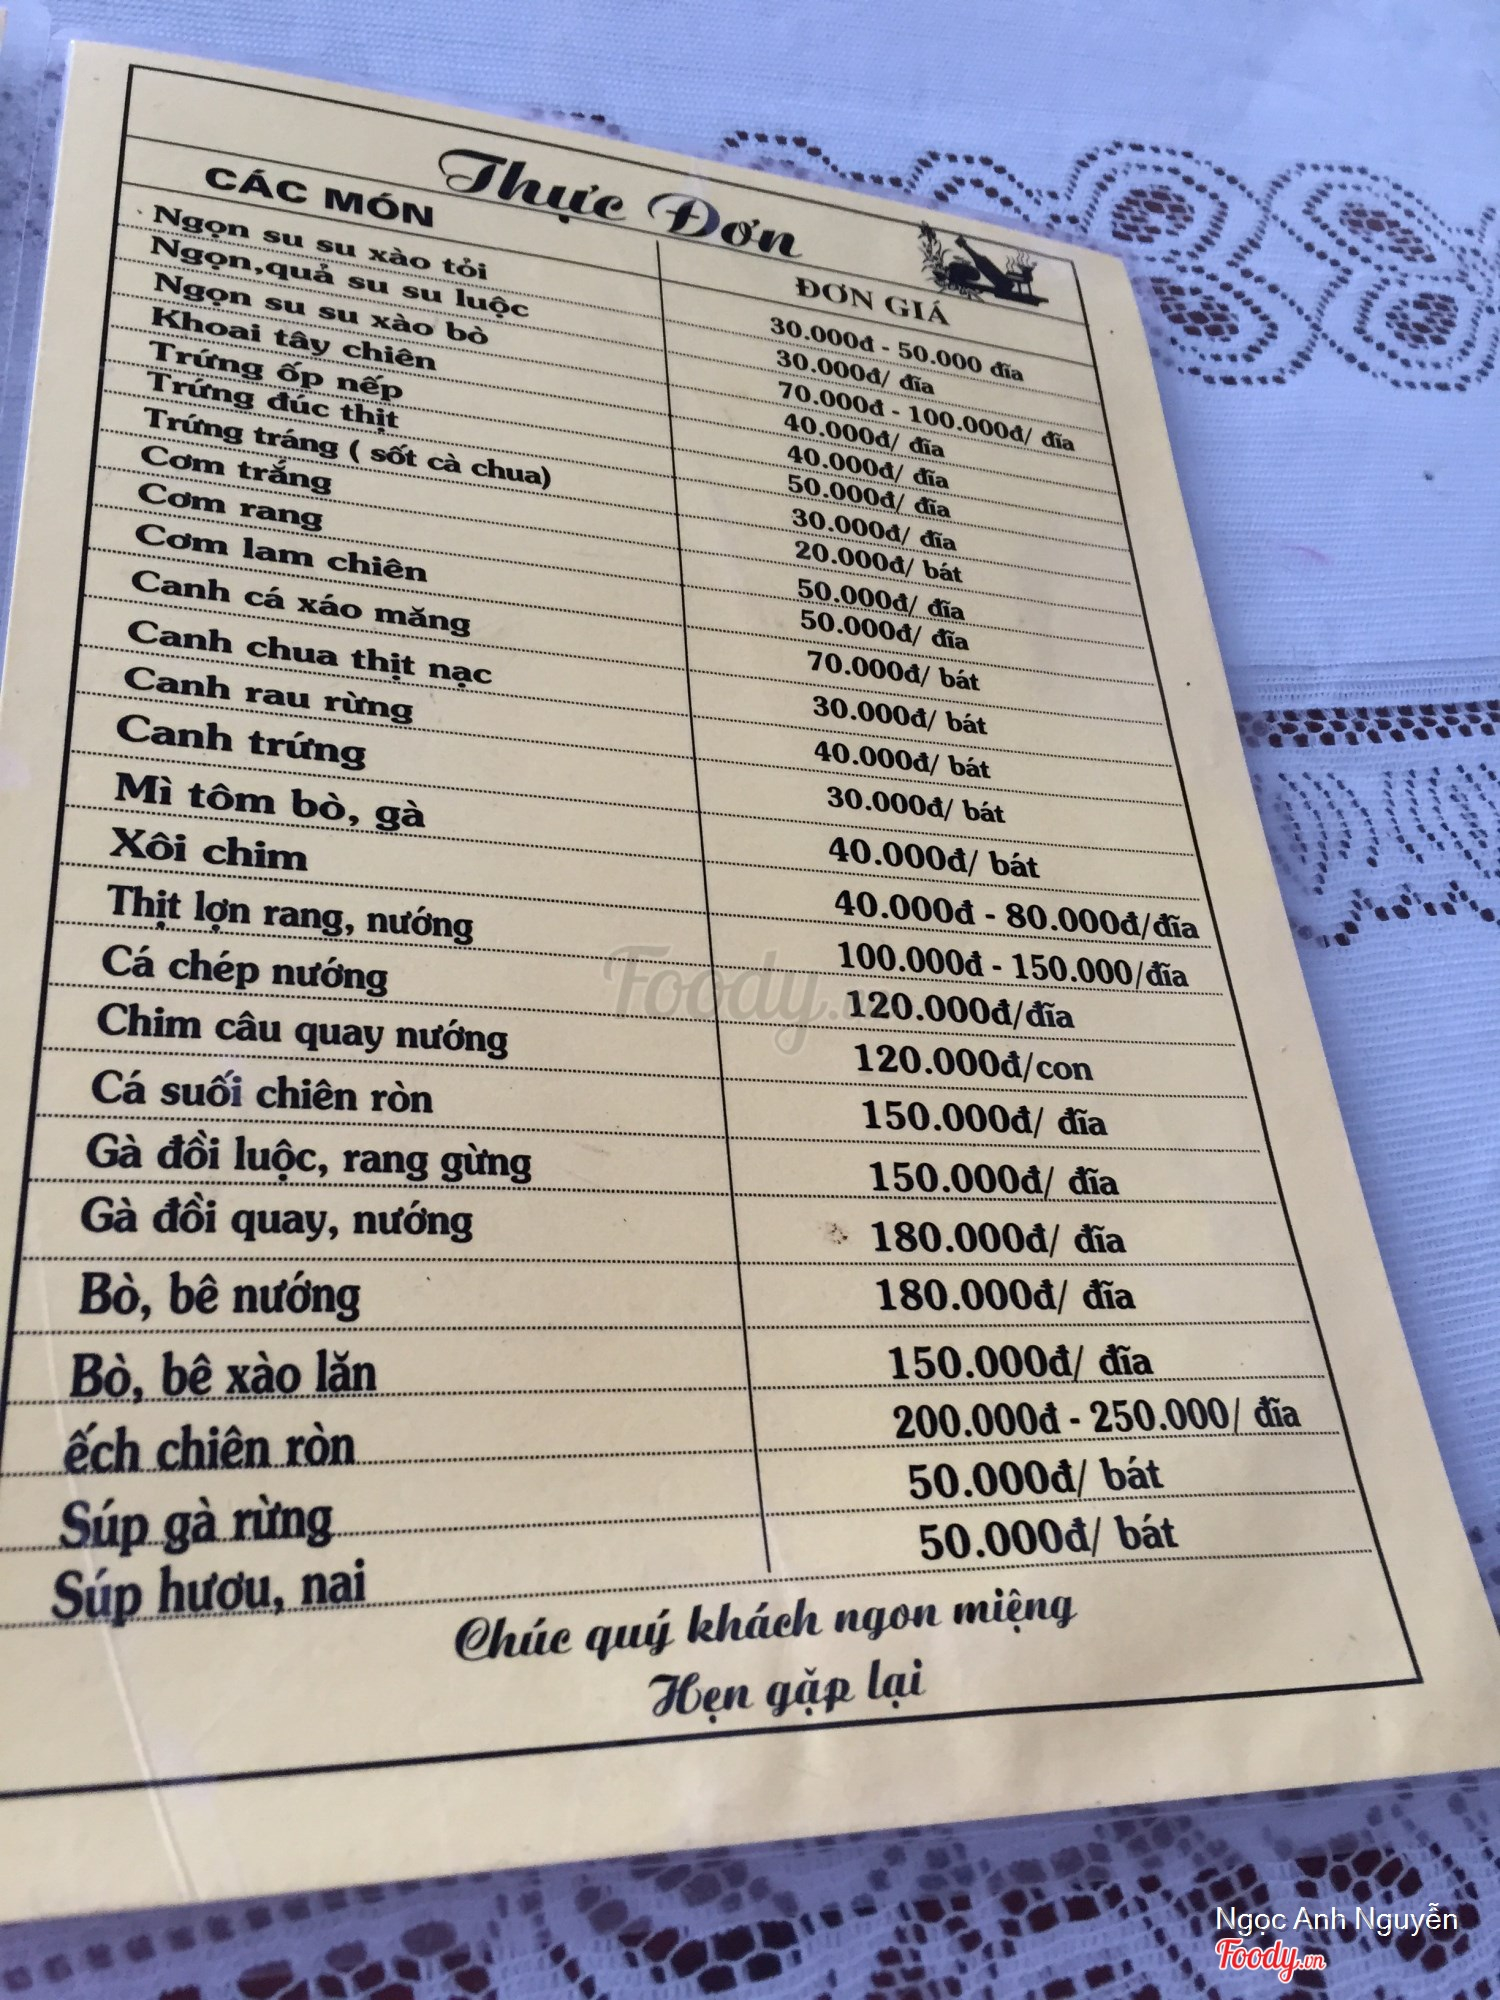 Thực Đơn
CÁC MÓN ĐƠN GIÁ
Ngọn su su xào tỏi 30.000đ - 50.000 đĩa
Ngọn,quả su su luộc 30.000đ/ đĩa
Ngọn su su xào bò 70.000đ - 100.000đ/ đĩa
Khoai tây chiên 40.000đ/ đĩa
Trứng ốp nếp 40.000đ/ đĩa
Trứng đúc thịt 50.000đ/ đĩa
Trứng tráng ( sốt cà chua) 30.000đ/ đĩa
Cơm trắng 20.000đ/ bát
Cơm rang 50.000đ/ đĩa
Cơm lam chiên 50.000đ/ đĩa
Canh cá xáo măng 70.000đ/ bát
Canh chua thịt nạc 30.000đ/ bát
Canh rau rừng 40.000đ/ bát
Canh trứng 30.000đ/ bát
Mì tôm bò, gà 40.000đ/ bát
Xôi chim 40.000đ - 80.000đ/đĩa
Thịt lợn rang, nướng 100.000đ - 150.000/đĩa
Cá chép nướng 120.000đ/đĩa
Chim câu quay nướng 120.000đ/con
Cá suối chiên ròn 150.000đ/ đĩa
Gà đồi luộc, rang gừng 150.000đ/ đĩa
Gà đồi quay, nướng 180.000đ/ đĩa
Bò, bê nướng 180.000đ/ đĩa
Bò, bê xào lăn 150.000đ/ đĩa
ếch chiên ròn 200.000đ - 250.000/ đĩa
Súp gà rừng 50.000đ/ bát
Súp hươu, nai 50.000đ/ bát
Chúc quý khách ngon miệng
Hẹn gặp lại
Foody.vn
Ngọc Anh Nguyễn
Foody.vn